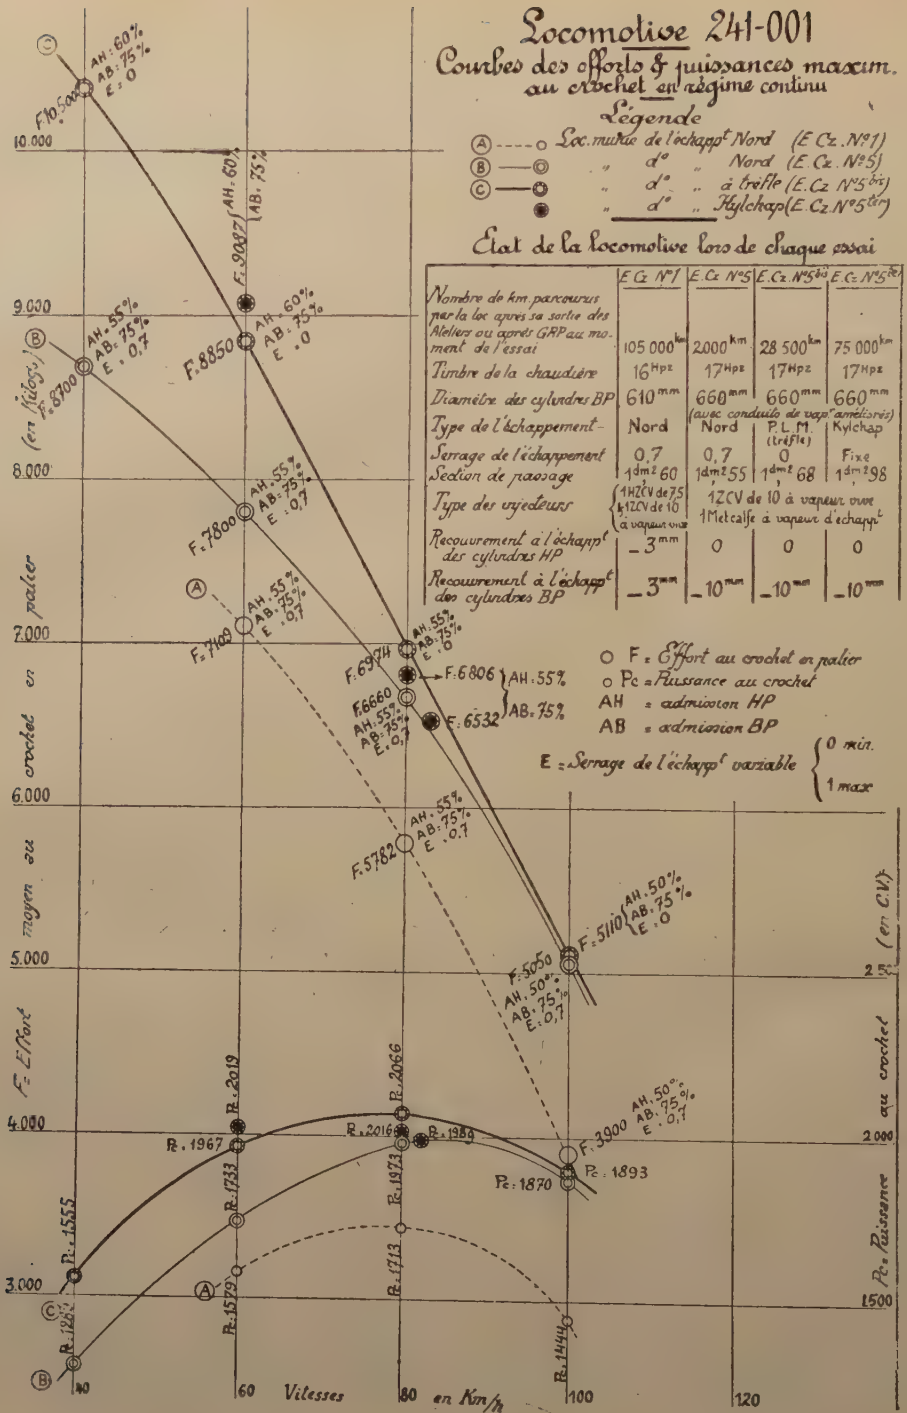 Locomotive 241-001
Courbes des efforts & puissances maxim.
au crochet en régime continu
Légende
A o Loc. munie de l'échappt Nord (E.Cz. N°1)
B " d° " Nord (E.Cz. N°5)
C " d° " à trèfle (E.Cz N°5 bis)
" d° " Kylchap (E.Cz. N°5 ter)
Etat de la locomotive lors de chaque essai
E.Cz N°1 E.Cz N°5 E.Cz N°5 bis E.Cz N°5 ter
Nombre de km. parcourus
par la loc après sa sortie des
Ateliers ou après GRP au mo-
ment de l'essai 105 000 km 2000 km 28 500 km 75 000 km
Timbre de la chaudière 16 Hpz 17 Hpz 17 Hpz 17 Hpz
Diamètre des cylindres BP 610 mm 660 mm 660 mm 660 mm
(avec conduits de vapr améliorés)
Type de l'échappement - Nord Nord P.L.M. Kylchap
(trèfle)
Serrage de l'échappement 0,7 0,7 0 Fixe
Section de passage 1dm2,60 1dm2,55 1dm2,68 1dm2,98
Type des injecteurs
1 12CV de 10 à vapeur vive
1 Metcalfe à vapeur d'échappt
à vapeur vive
Recouvrement à l'échappt
des cylindres HP -3 mm 0 0 0
Recouvrement à l'échappt
des cylindres BP -3 mm -10 mm -10 mm -10 mm
O F = Effort au crochet en palier
o Pc = Puissance au crochet
AH = admission HP
AB = admission BP
E = Serrage de l'échappt variable { 0 min.
1 max
F = Effort moyen au crochet en palier (en Kilogs.)
10.000
9.000
8.000
7.000
6.000
5.000
4.000
3.000
C
F.10.500
AH:60%
AB:75%
E:0
F.9087 { AH:60%
AB:75%
F.8850
AH:60%
AB:75%
E:0
B
F.8700
AH:55%
AB:75%
E:0,7
F.7800
AH:55%
AB:75%
E:0,7
A
F=7109
AH:55%
AB:75%
E:0,7
F.6974
AH:55%
AB:75%
E:0
F.6806
F.6532
AH:55%
AB:75%
F.6660
AH:55%
AB:75%
E:0,7
F.5782
AH:55%
AB:75%
E:0,7
F:5110 { AH:50%
AB:75%
E:0
F:5050
AH:50%
AB:75%
E:0,7
F.3900
AH:50%
AB:75%
E:0,7
Pc.2019
Pc.2066
Pc.1967
Pc.2016
Pc.1989
Pc.1733
Pc.1973
Pc:1870
Pc:1893
Pc.1555
C
A
Pc.1579
Pc.1713
Pc.1444
B
40 60 Vitesses 80 en Km/h 100 120
Pc = Puissance au crochet (en C.V.)
2 000
1500